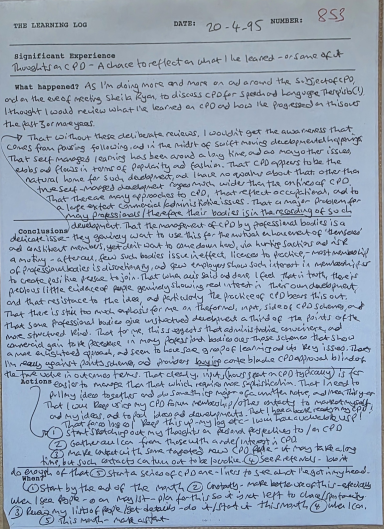 THE LEARNING LOG DATE: 20-4-95 NUMBER: 853
Significant Experience
Thoughts on CPD - A chance to reflect on what I've learned - or some of it
What happened? As I'm doing more and more on and around the subject of CPD,
and on the eve of meeting Sheila to discuss CPD for Speech and Language Therapists(!)
I thought I would review what I've learned on CPD and how I've progressed on this over
the past 3 or more years.
→ That without these deliberate reviews, I wouldn't get the awareness that
comes from pausing following, and in the midst of swift moving developmental happenings
That self managed learning has been around a long time and as many other issues,
ebbs and flows in terms of popularity and fashion. That CPD appears to be the
natural home for such development, and I have no qualms about that other than
true self-managed development is so much wider than the confines of CPD
That there are many approaches to CPD, that reflect occupational, and to
a large extent commercial/administrative issues. That a major problem for
many professionals/therefore their bodies is in the recording of such
Conclusions development. That the management of CPD by professional bodies is a
delicate issue. They genuinely want to use this for the mutual
and constituent members, yet don't want to come down hard, via hurting sections and risk
a mutiny - after all, few such bodies issue in effect, licences to practice, - most membership
of professional bodies is discretionary, and few employers show such interest in membership
to create positive pressure to join. That when all said and done I feel that in truth, there's
precious little evidence of people genuinely showing real interest in their own development
and that resistance to the idea, and particularly the practice of CPD bears this out.
That there is still too much emphasis for me, on the formal, input, side of CPD schemes, and
that some professional bodies give unstructured development a third of the points of the
more structured kind. That for me, this suggests that administrative, convenience, and
commercial gain take precedence in many professional bodies over those schemes that show
a more enlightened approach, and seem to have some grasp of learning and its key issues. That
I'm against points schemes, and providers carte blanche CPD approval blind of
the true value in outcome terms. That clearly, input, (hours spent on CPD typically) is far
Actions easier to manage than that which requires more sophistication. That I need to
pull my ideas together and do something major
That I now keep up my CPD forum membership/other contacts to market myself
and my ideas, and to pick ideas and developments. That I have to keep reading on CPD!
That for so long as I keep this up - my log etc - I won't
① Start sketching out my thoughts on personal perspectives to/on CPD
② Gather all I can from those with a
③ Make contact with some targeted new CPD people - it may take a long
time but such contacts can turn out to be priceless ④ Keep friends - don't
do enough of that ⑤ Start a series of CPD one-liners to see what I've got in my head.
When?
① Start by the end of the month ② Constantly - make better use of this - especially
when I see people - on my list - plan for this so it's not left to chance/spontaneity
③ Read my list of people/get details - do it/start it this month ④ when I can.
⑤ This month - make a start